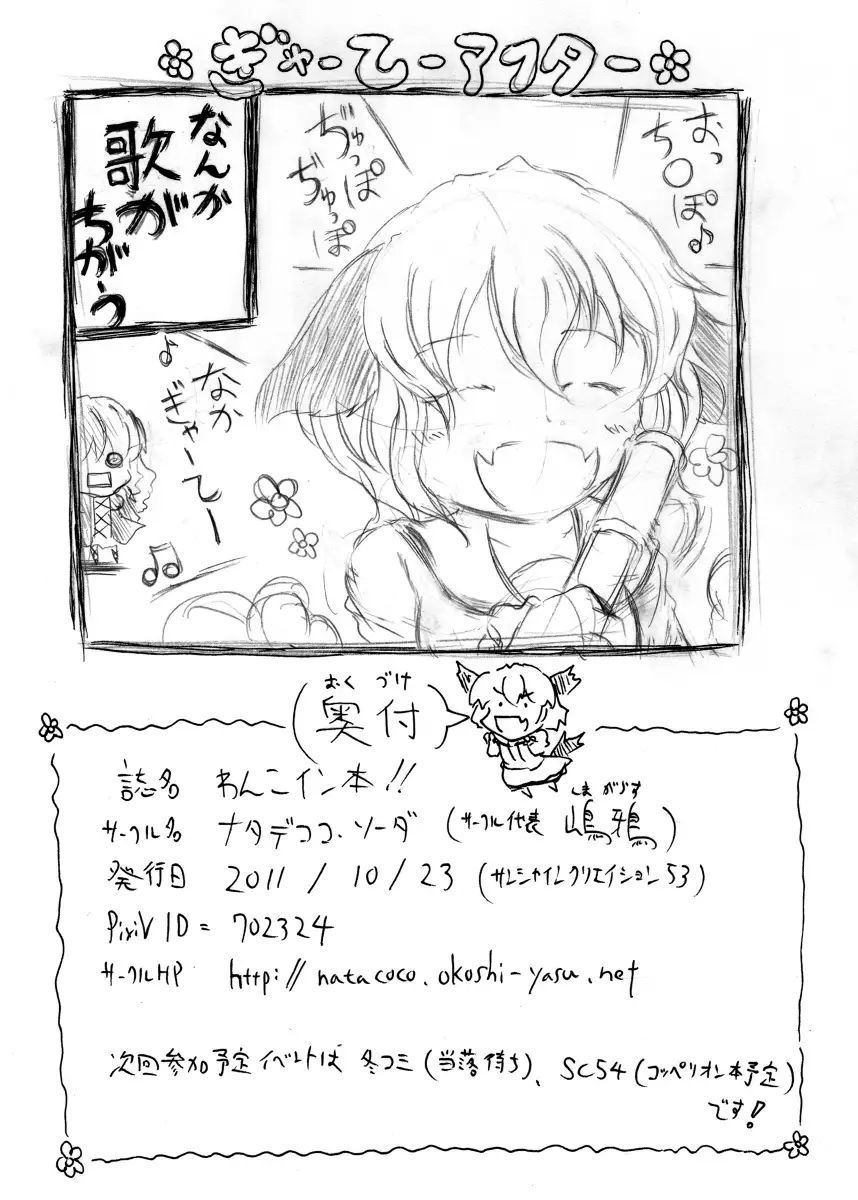 ぎゃーてーアフター
おっ
ち○ぽ♪
ぢゅっぽ
ぢゅっぽ
なんか
歌が
ちがう
なか
ぎゃーてー♪
おくづけ
奥付
誌名 わんこイン本!!
サークル名 ナタデココ・ソーダ (サークル代表 嶋鴉)
しまがらす
発行日 2011/10/23 (サンシャインクリエイション53)
Pixiv ID = 702324
サークルHP http://natacoco.okoshi-yasu.net
次回参加予定イベントは 冬コミ(当落待ち)、SC54(コッペリオン本予定)
です!